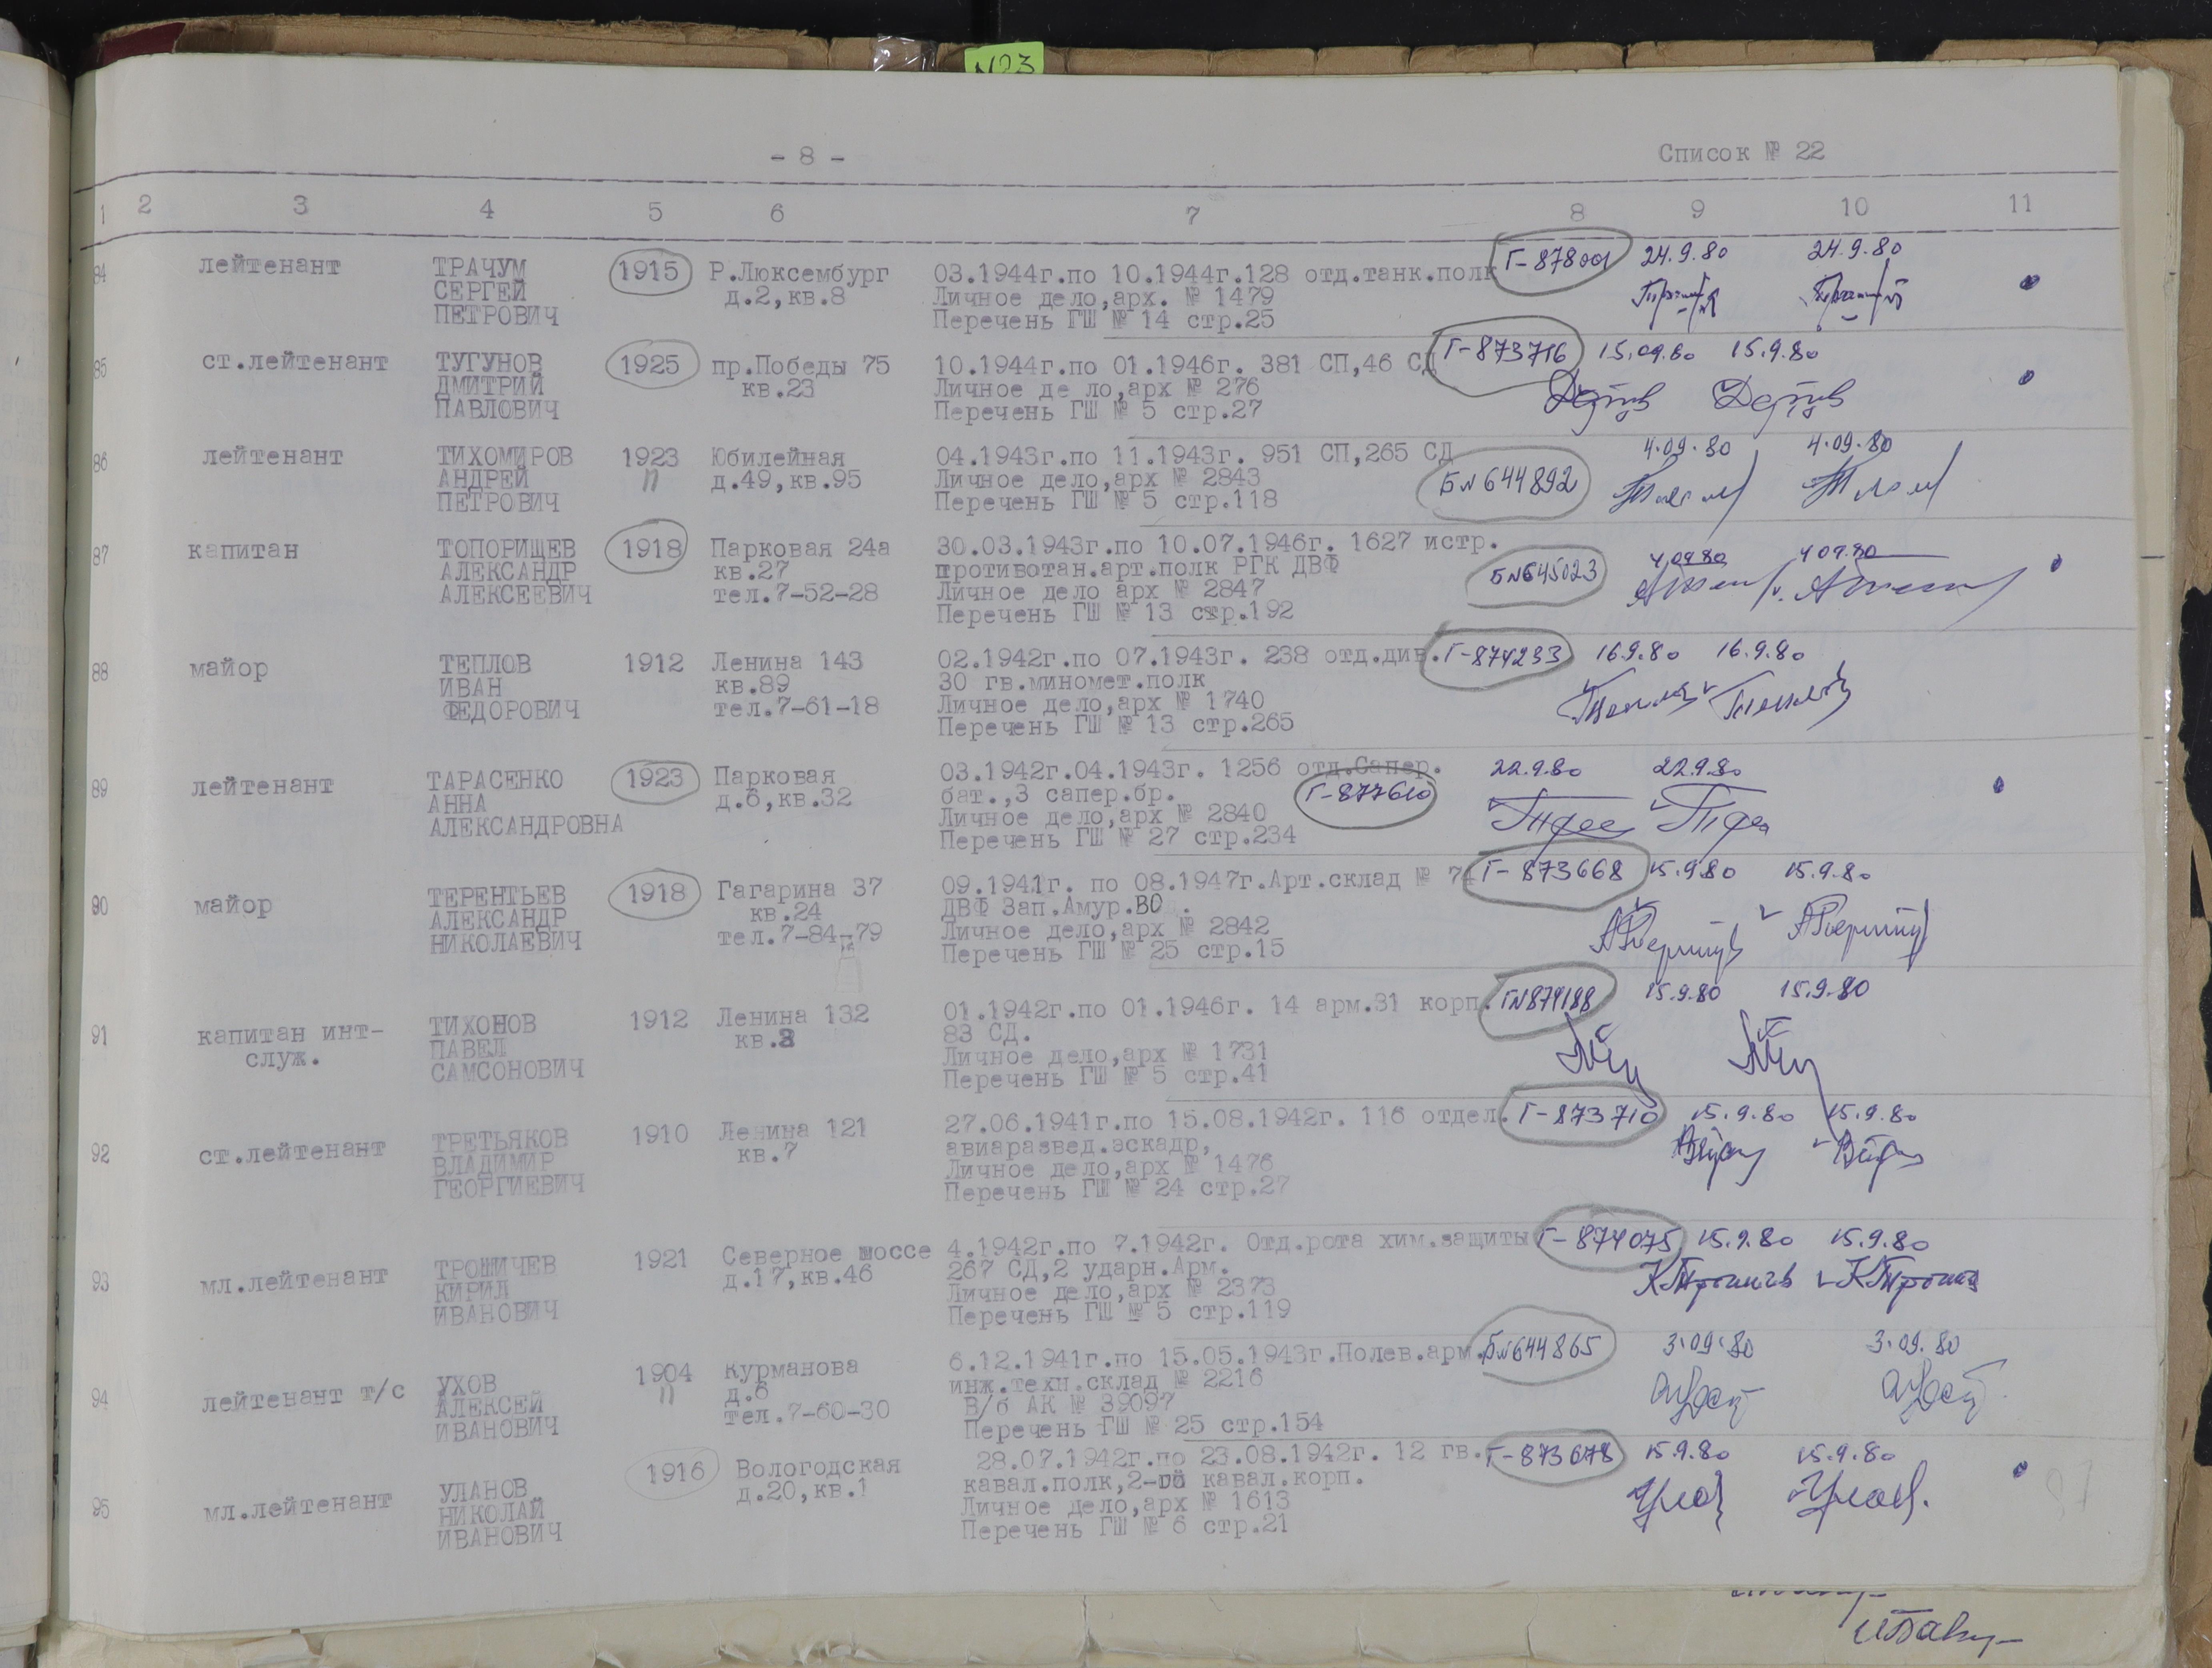 N23
- 8 -
Список № 22
1 2 3 4 5 6 7 8 9 10 11
84 лейтенант ТРАЧУМ 1915 Р.Люксембург 03.1944г.по 10.1944г.128 отд.танк.полк Г-878001 24.9.80 24.9.80
СЕРГЕЙ д.2,кв.8 Личное дело,арх. № 1479
ПЕТРОВИЧ Перечень ГШ № 14 стр.25
85 ст.лейтенант ТУГУНОВ 1925 пр.Победы 75 10.1944г.по 01.1946г. 381 СП,46 СД Г-873716 15.09.80 15.9.80
ДМИТРИЙ кв.23 Личное де ло,арх № 276
ПАВЛОВИЧ Перечень ГШ № 5 стр.27
86 лейтенант ТИХОМИРОВ 1923 Юбилейная 04.1943г.по 11.1943г. 951 СП,265 СД БN644892 4.09.80 4.09.80
АНДРЕЙ " д.49,кв.95 Личное дело,арх № 2843
ПЕТРОВИЧ Перечень ГШ № 5 стр.118
87 капитан ТОПОРИЩЕВ 1918 Парковая 24а 30.03.1943г.по 10.07.1946г. 1627 истр. БN645023 4 09.80 4 09.80
АЛЕКСАНДР кв.27 противотан.арт.полк РГК ДВФ
АЛЕКСЕЕВИЧ тел.7-52-28 Личное дело арх № 2847
Перечень ГШ № 13 стр.192
88 майор ТЕПЛОВ 1912 Ленина 143 02.1942г.по 07.1943г. 238 отд.див. Г-874233 16.9.80 16.9.80
ИВАН кв.89 30 гв.миномет.полк
ФЕДОРОВИЧ тел.7-61-18 Личное дело,арх № 1740
Перечень ГШ № 13 стр.265
89 лейтенант ТАРАСЕНКО 1923 Парковая 03.1942г.04.1943г. 1256 отд.Сапер. 22.9.80 22.9.80
АННА д.6,кв.32 бат.,3 сапер.бр. Г-877610
АЛЕКСАНДРОВНА Личное дело,арх № 2840
Перечень ГШ № 27 стр.234
90 майор ТЕРЕНТЬЕВ 1918 Гагарина 37 09.1941г. по 08.1947г.Арт.склад № 74 Г-873668 15.9.80 15.9.80
АЛЕКСАНДР кв.24 ДВФ Зап.Амур.ВО .
НИКОЛАЕВИЧ тел.7-84-79 Личное дело,арх № 2842
Перечень ГШ № 25 стр.15
91 капитан инт- ТИХОНОВ 1912 Ленина 132 01.1942г.по 01.1946г. 14 арм.31 корп. ГN874188 15.9.80 15.9.80
служ. ПАВЕЛ кв.3 83 СД.
САМСОНОВИЧ Личное дело,арх № 1731
Перечень ГШ № 5 стр.41
92 ст.лейтенант ТРЕТЬЯКОВ 1910 Ленина 121 27.06.1941г.по 15.08.1942г. 116 отдел. Г-873710 15.9.80 15.9.80
ВЛАДИМИР кв.7 авиаразвед.эскадр,
ГЕОРГИЕВИЧ Личное дело,арх № 1476
Перечень ГШ № 24 стр.27
93 мл.лейтенант ТРОШИЧЕВ 1921 Северное шоссе 4.1942г.по 7.1942г. Отд.рота хим.защиты Г-874075 15.9.80 15.9.80
КИРИЛ д.17,кв.46 267 СД,2 ударн.Арм.
ИВАНОВИЧ Личное дело,арх № 2373
Перечень ГШ № 5 стр.119
94 лейтенант т/с УХОВ 1904 Курманова 6.12.1941г.по 15.05.1943г.Полев.арм. БN644865 3.09.80 3.09.80
АЛЕКСЕЙ " д.6 инж.техн.склад № 2216
ИВАНОВИЧ тел.7-60-30 В/б АК № 39097
Перечень ГШ № 25 стр.154
95 мл.лейтенант УЛАНОВ 1916 Вологодская 28.07.1942г.по 23.08.1942г. 12 гв. Г-873678 15.9.80 15.9.80
НИКОЛАЙ д.20,кв.1 кавал.полк,2-ой кавал.корп.
ИВАНОВИЧ Личное дело,арх № 1613
Перечень ГШ № 6 стр.21